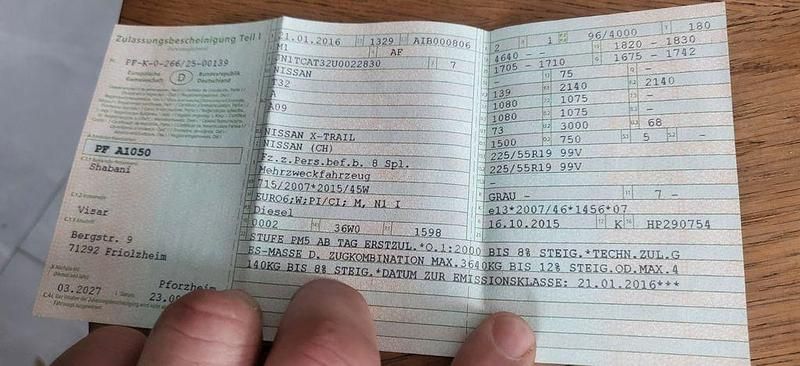 Zulassungsbescheinigung Teil I
PF-K-0-266/25-00139
Europäische Gemeinschaft
D
Bundesrepublik Deutschland
PF A1050
Shabani
Visar
Bergstr. 9
71292 Friolzheim
03.2027
Pforzheim
23.0
21.01.2016 1329 AIB000806
M1 AF
N1TCAT32U0022830 7
NISSAN
T32
A
A09
NISSAN X-TRAIL
NISSAN (CH)
Fz.z.Pers.bef.b. 8 Spl.
Mehrzweckfahrzeug
715/2007*2015/45W
EURO6;W;PI/CI; M, N1 I
Diesel
0002 36W0 1598
2 1 96/4000 180
4640 - - 1820 - 1830
1705 - 1710 1675 - 1742
75 -
139 2140 2140
1080 1075 -
1080 1075 -
73 3000 68
1500 750 5 -
225/55R19 99V
225/55R19 99V
-
GRAU - 7 -
e13*2007/46*1456*07
16.10.2015 K HP290754
STUFE PM5 AB TAG ERSTZUL.*O.1:2000 BIS 8% STEIG.*TECHN.ZUL.G
ES-MASSE D. ZUGKOMBINATION MAX.3640KG BIS 12% STEIG.OD.MAX.4
140KG BIS 8% STEIG.*DATUM ZUR EMISSIONSKLASSE: 21.01.2016***